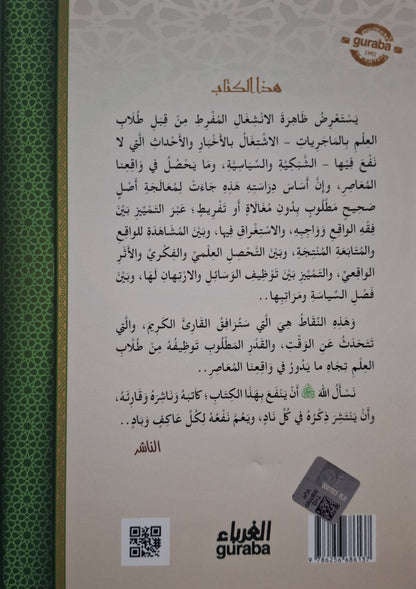 guraba
1992
هذا الكتاب
يَسْتَعْرِضُ ظَاهِرَةَ الانْشِغَالِ المُفْرِطِ مِنْ قِبَلِ طُلَّابِ
العِلْمِ بِالمَاجَرِيَاتِ - الاشْتِغَالُ بِالأَخْبَارِ وَالأَحْدَاثِ الَّتِي لَا
نَفْعَ فِيهَا - الشَّبَكِيَّةِ وَالسِّيَاسِيَّةِ، وَمَا يَحْصُلُ فِي وَاقِعِنَا
المُعَاصِرِ، وَإِنَّ أَسَاسَ دِرَاسَتِهِ هَذِهِ جَاءَتْ لِمُعَالَجَةِ أَصْلٍ
صَحِيحٍ مَطْلُوبٍ بِدُونِ مُغَالَاةٍ أَو تَفْرِيطٍ؛ عَبْرَ التَّمْيِيزِ بَيْنَ
فِقْهِ الوَاقِعِ وَوَاجِبِهِ، وَالاسْتِغْرَاقِ فِيهَا، وَبَيْنَ المُشَاهَدَةِ لِلوَاقِعِ
وَالمُتَابَعَةِ المُنْتِجَةِ، وَبَيْنَ التَّحْصُلِ العِلْمِيِّ وَالفِكْرِيِّ وَالأَثَرِ
الوَاقِعِيِّ، وَالتَّمْيِيزِ بَيْنَ تَوْظِيفِ الوَسَائِلِ وَالارْتِهَانِ لَهَا، وَبَيْنَ
فَصْلِ السِّيَاسَةِ وَمَرَاتِبِهَا..
وَهَذِهِ النِّقَاطُ هِيَ الَّتِي سَتُرَافِقُ القَارِئَ الكَرِيمَ، وَالَّتِي
تَتَحَدَّثُ عَنِ الوَقْتِ، وَالقَدْرِ المَطْلُوبِ تَوْظِيفُهُ مِنْ طُلَّابِ
العِلْمِ تِجَاهَ مَا يَدُورُ فِي وَاقِعِنَا المُعَاصِرِ.
نَسْأَلُ اللهَ أَنْ يَنْفَعَ بِهَذَا الكِتَابِ؛ كَاتِبَهُ وَنَاشِرَهُ وَقَارِئَهُ،
وَأَنْ يَنْتَشِرَ ذِكْرُهُ فِي كُلِّ نَادٍ، وَيَعُمَّ نَفْعُهُ لِكُلِّ عَاكِفٍ وَبَادٍ..
الناشر
الغرباء
guraba
9 786256 686137